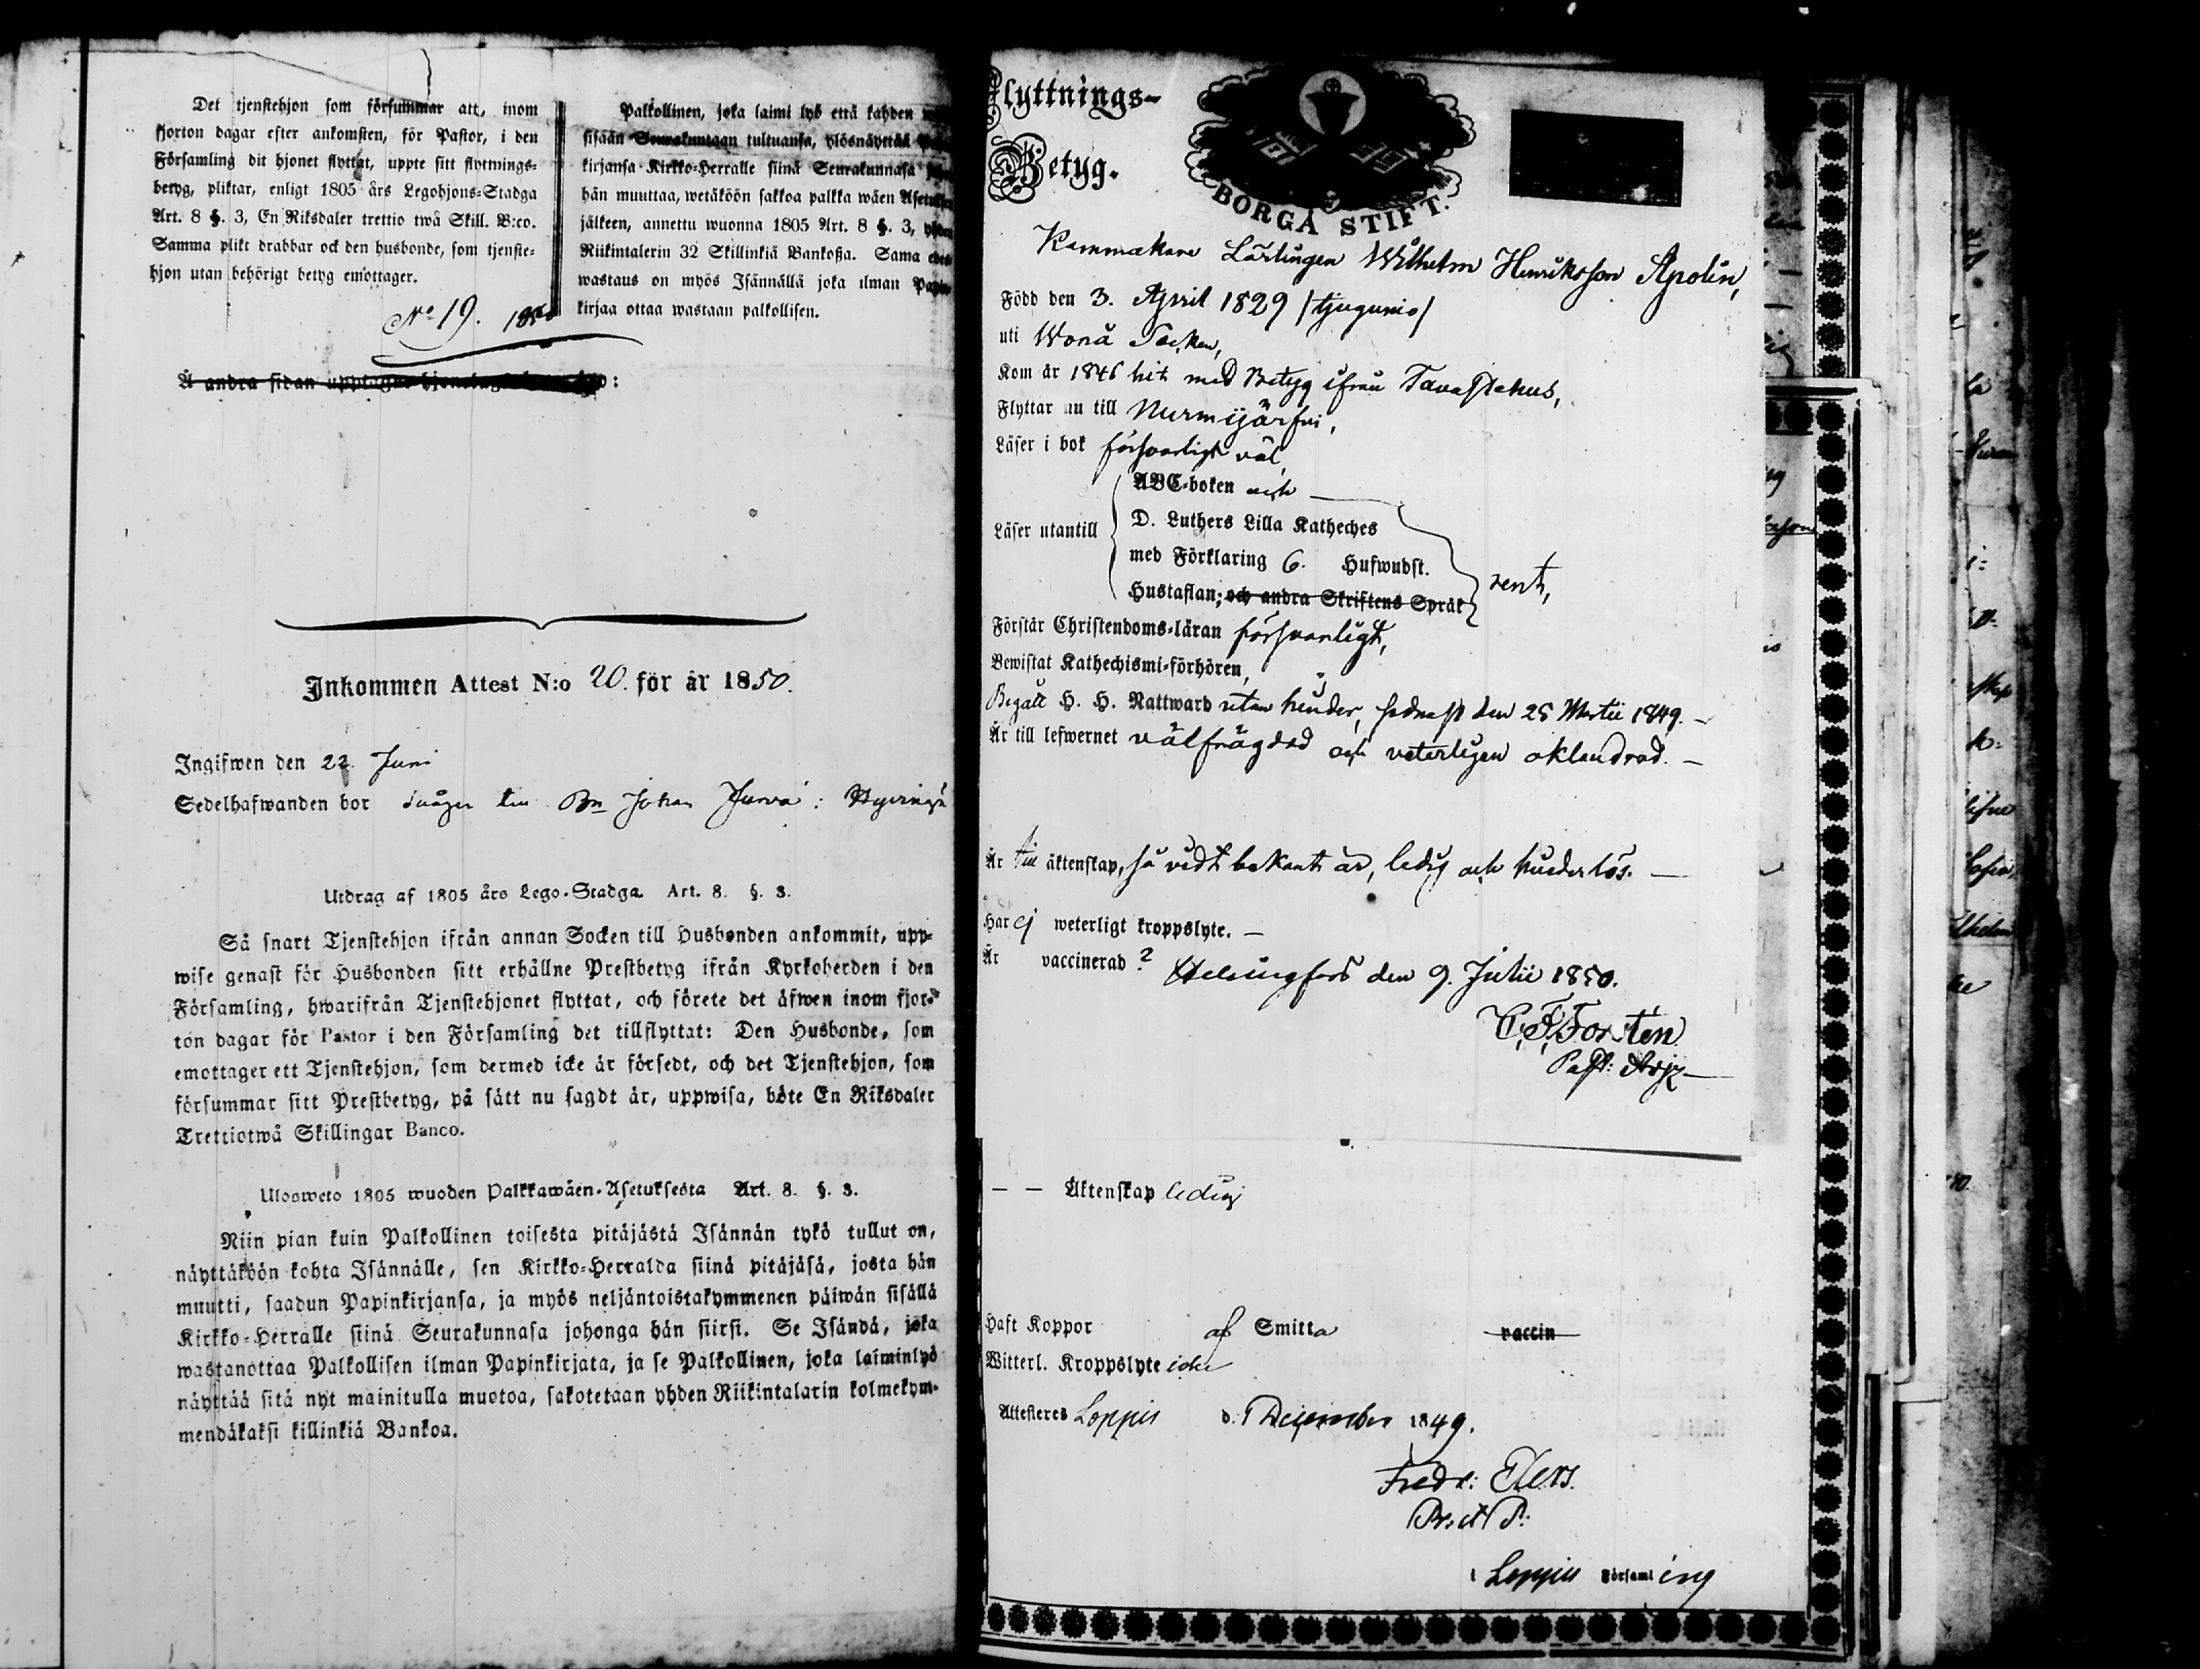 Det tjenstehjon som försummar att, inom
fjorton dagar efter ankomsten, för Pastor, i den
Församling dit hjonet flyttat, uppte sitt flyttnings-
betyg, pliktar, enligt 1805 års Legohjons-Stadga
Art. 8 §. 3, En Riksdaler trettio twå Skill. B:co.
Samma plikt drabbar ock den husbonde, som tjenste-
hjon utan behörigt betyg emottager.
Palkollinen, joka laimi lyö että kahden
sisään Seurakuntaan tultuansa, ylösnäyttää
kirjansa Kirkko-Herralle siinä Seurakunnasa
hän muuttaa, wetäköön sakkoa palkka wäen Asetuksen
jälkeen, annettu wuonna 1805 Art. 8 §. 3, yhden
Riikintalerin 32 Skillinkiä Bankoßa. Sama
wastaus on myös Isännällä joka ilman
kirjaa ottaa wastaan palkollisen.
No 19. 1850
Å andra sidan
Inkommen Attest N:o 20. för år 1850.
Ingifwen den 22 Juni
Sedelhafwanden bor Johan
Utdrag af 1805 års Lego-Stadga Art. 8. §. 3.
Så snart Tjenstehjon ifrån annan Socken till Husbonden ankommit, upp-
wise genast för Husbonden sitt erhållne Prestbetyg ifrån Kyrkoherden i den
Församling, hwarifrån Tjenstehjonet flyttat, och förete det äfwen inom fjor-
ton dagar för Pastor i den Församling det tillflyttat: Den Husbonde, som
emottager ett Tjenstehjon, som dermed icke är försedt, och det Tjenstehjon, som
försummar sitt Prestbetyg, på sätt nu sagdt är, uppwisa, böte En Riksdaler
Trettiotwå Skillingar Banco.
Ulosweto 1805 wuoden Palkkawäen-Asetuksesta Art. 8. §. 3.
Niin pian kuin Palkollinen toisesta pitäjästä Isännän tykö tullut on,
näyttäköön kohta Isännälle, sen Kirkko-Herralda siinä pitäjäsä, josta hän
muutti, saadun Papinkirjansa, ja myös neljäntoistakymmenen päiwän sisällä
Kirkko-Herralle siinä Seurakunnasa johonga hän siirsi. Se Isändä, joka
wastanottaa Palkollisen ilman Papinkirjata, ja se Palkollinen, joka laiminlyö
näyttää sitä nyt mainitulla muotoa, sakotetaan yhden Riikintalarin kolmekym-
mendäkaksi killinkiä Bankoa.
Flyttnings-
Betyg.
BORGÅ STIFT.
Kammakare Lärlingen Wilhelm Henriksson Apolin,
Född den 3. April 1829 /tjugunio/
uti Wonå Socken,
Kom år 1846 hit med Betyg ifrån Tavastehus,
Flyttar nu till Nurmijärfvi,
Läser i bok försvarligt väl
ABC-boken och
Läser utantill D. Luthers Lilla Katheches
med Förklaring 6. Hufwudst.
Hustaflan; och andra Skriftens Språk rent,
Förstår Christendoms-läran försvarligt,
Bewistat Kathechismi-förhören,
Begått H. H. Nattward utan hinder, sednast den 25 Martii 1849. –
Är till lefwernet välfrägdad och veterligen oklandrad. –
Är till äktenskap, så vidt bekant är, ledig och hinderlös. –
Har ej weterligt kroppslyte. –
Är vaccinerad? Helsingfors den 9. Julii 1850.
C. F. Forstén
Past: Adj:
– – Äktenskap ledig
Haft Koppor af Smitta vaccin
Witterl. Kroppslyte icke
Attesteras Loppis d. 1 December 1849.
Fredr: Elers.
i Loppis Församling